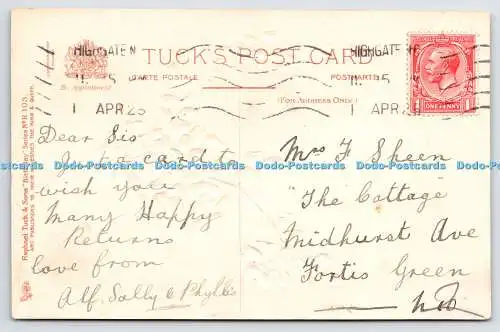 HIGHGATE N
TUCK'S POST CARD
HIGHGATE N
CARTE POSTALE
POSTKARTE
By Appointment
(FOR ADDRESS ONLY.)
1 APR 25
1 APR 25
ONE PENNY
Raphael Tuck & Sons' "Birthday" Series Nº B 105
Dear Sis
Just a card to
wish you
Many Happy
Returns
love from
Alf. Sally & Phyllis
Mrs F Sheen
"The Cottage
Midhurst Ave
Fortis Green
Dodo-Postcards Dodo-Postcards Dodo-Postcards Dodo-Postcards Dodo-Postcards Dodo-Postcards